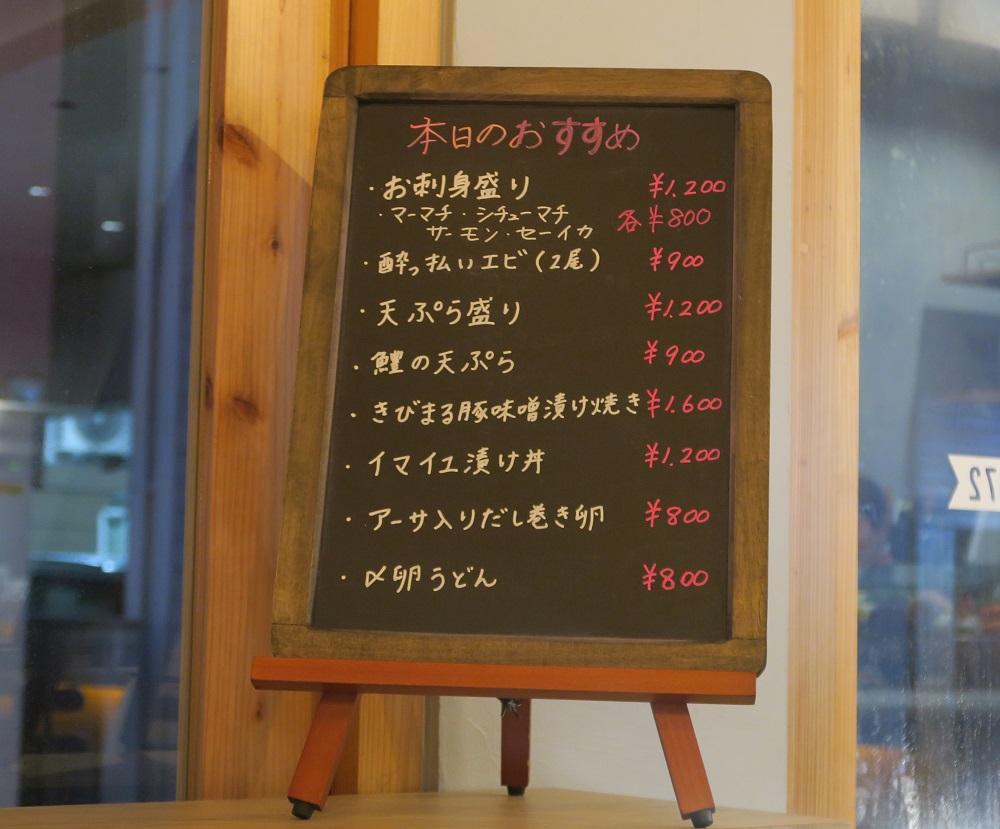 本日のおすすめ
・お刺身盛り ¥1.200
・マーマチ・シチューマチ 各¥800
サーモン・セーイカ
・酔っ払いエビ(2尾) ¥900
・天ぷら盛り ¥1.200
・鱧の天ぷら ¥900
・きびまる豚味噌漬け焼き ¥1.600
・イマイユ漬け丼 ¥1.200
・アーサ入りだし巻き卵 ¥800
・〆卵うどん ¥800
72